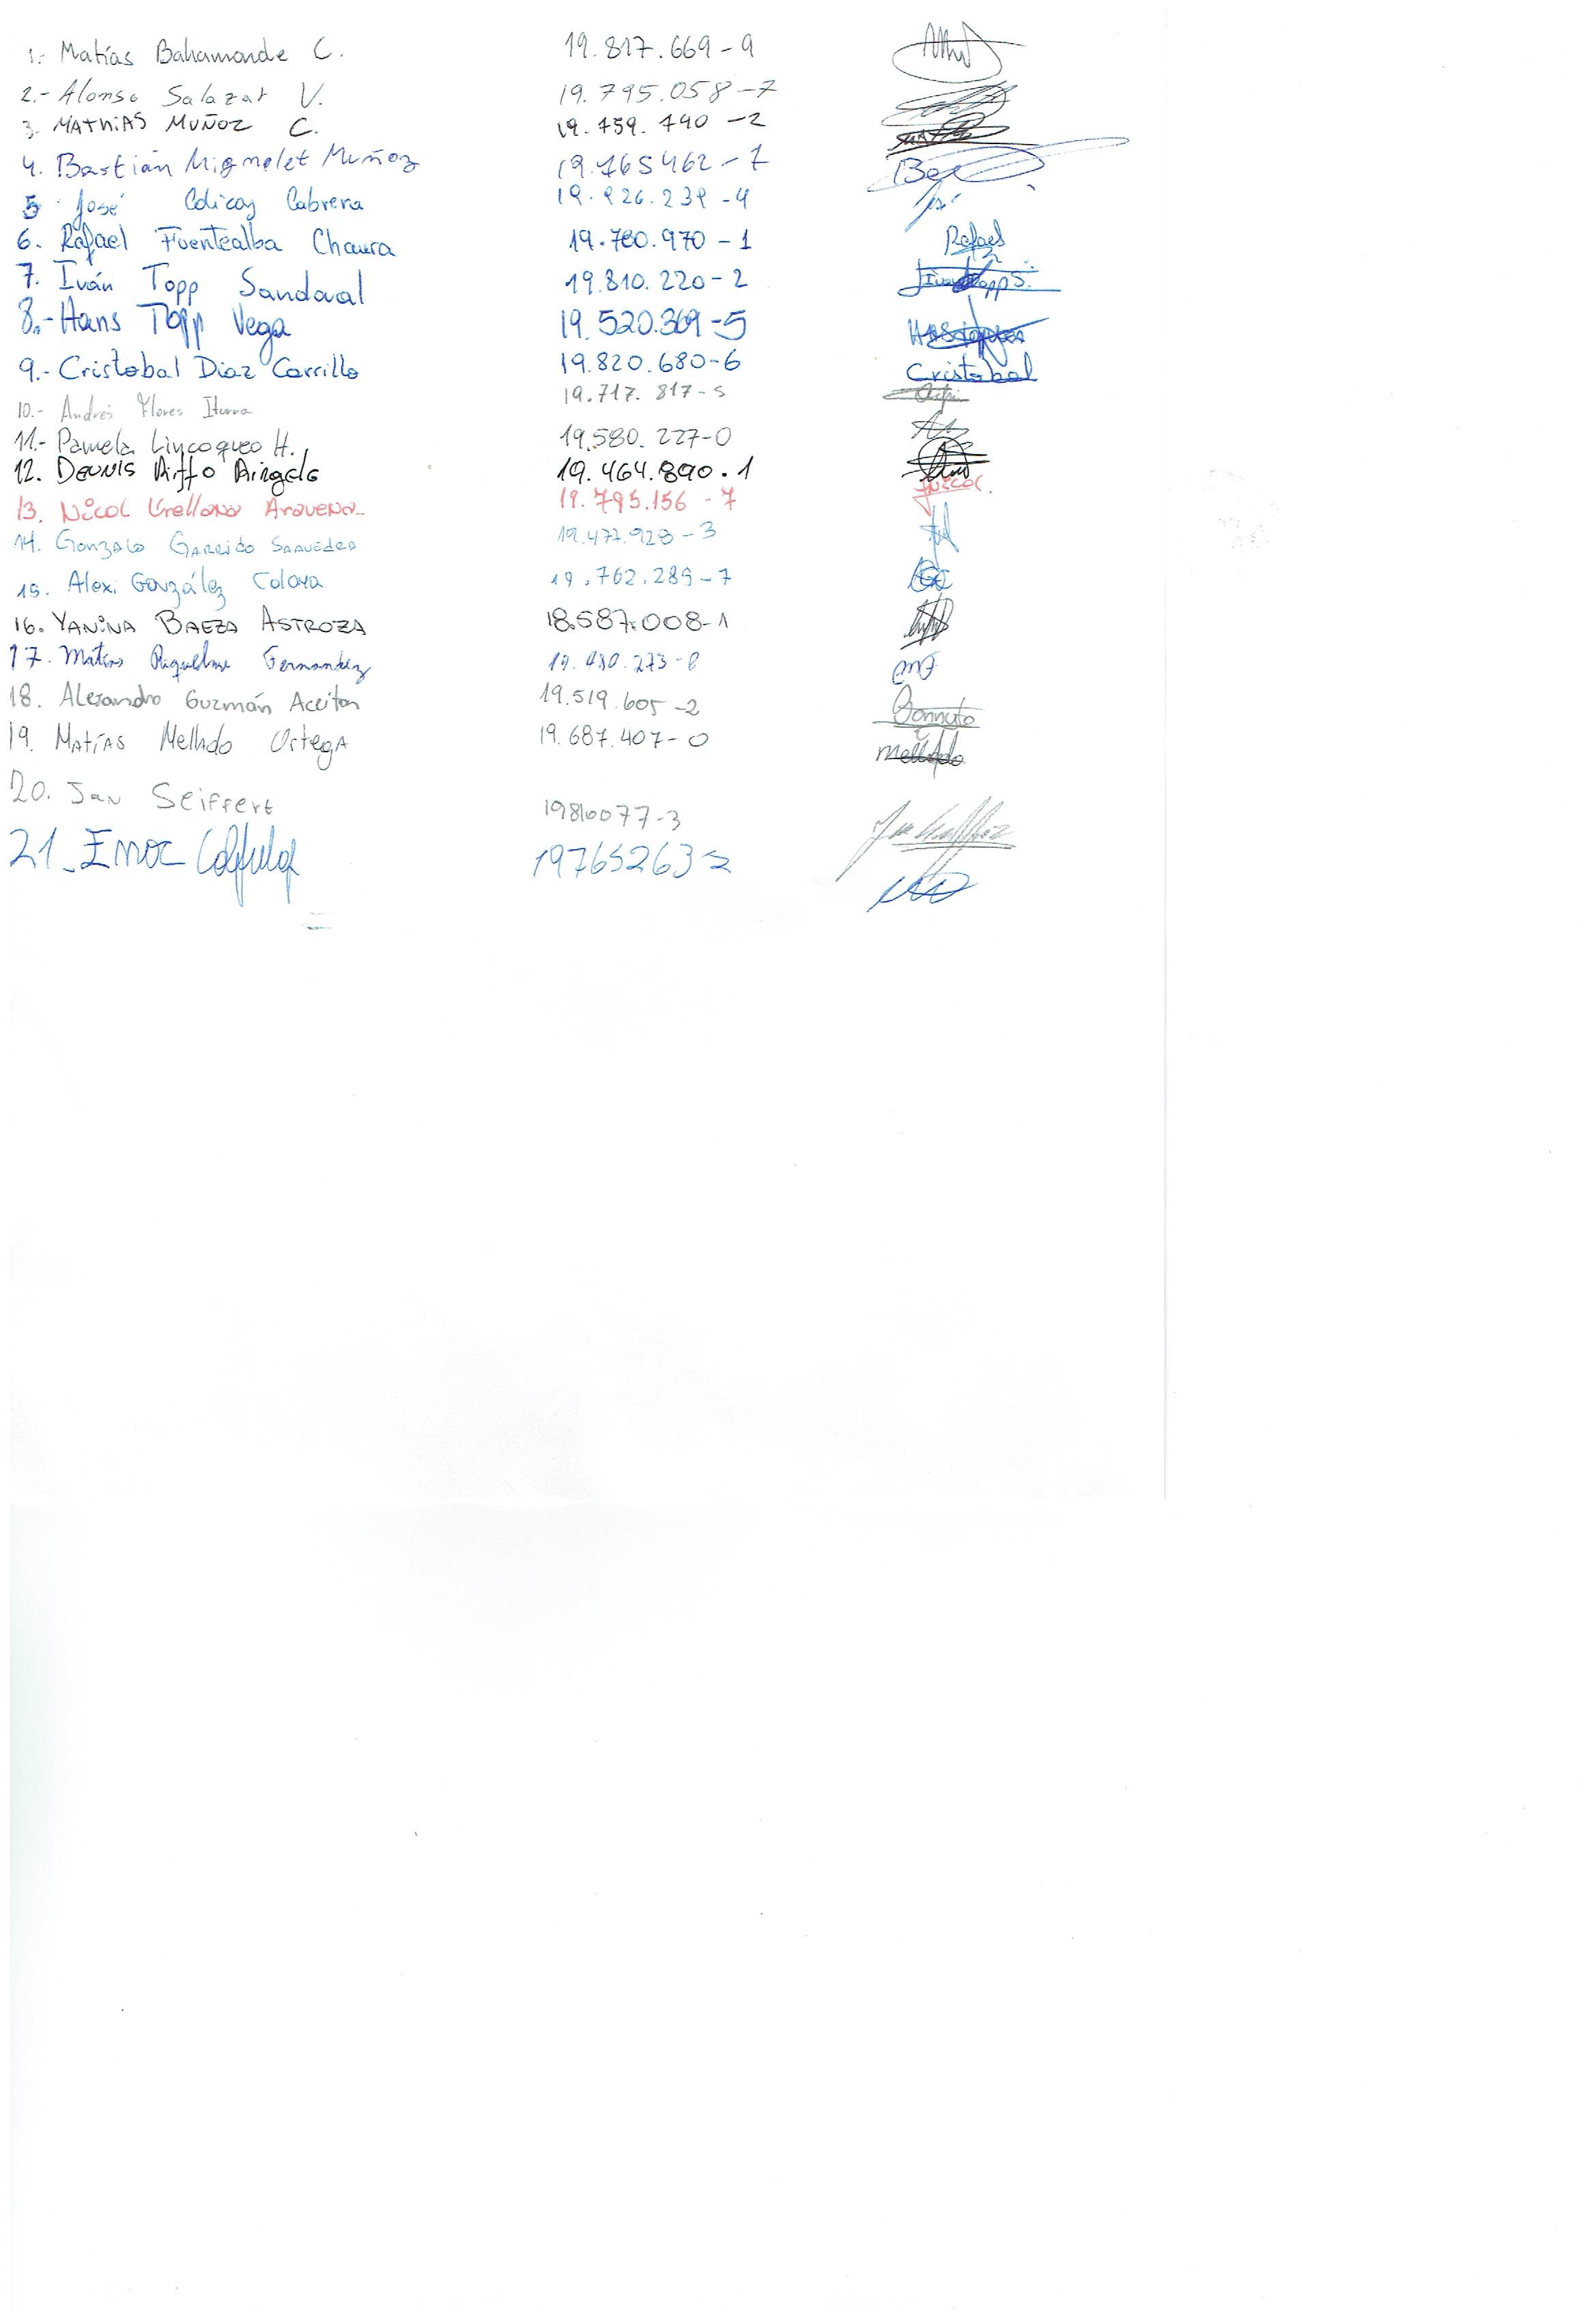 1.- Matías Bahamonde C. 19.817.669-9
2.- Alonso Salazar V. 19.795.058-7
3. MATHIAS MUÑOZ C. 19.759.740-2
4. Bastián Mignolet Muñoz 19.765462-7
5. José Colicoy Cabrera 19.926.239-4
6. Rafael Fuentealba Chaura 19.780.970-1 Rafael
7. Iván Topp Sandoval 19.810.220-2
8.- Hans Topp Vega 19.520.369-5
9.- Cristobal Diaz Carrillo 19.820.680-6 Cristobal
10.- Andrés Flores Iturra 19.717.817-5
11.- Pamela Lincoqueo H. 19.580.227-0
12. DENNIS Riffo 19.464.890.1
13. Nicol Orellana Aravena 19.795.156-7 Nicol.
14. Gonzalo Garrido Saavedra 19.477.928-3
15. Alexi González 19.762.289-7
16. YANINA BAEZA ASTROZA 18.587.008-1
17. Matías Riquelme Fernandez
18. Alejandro Guzmán Aceiton 19.519.605-2
19. Matías Mellado Ortega 19.687.407-0 Mellado
20. Jan Seiffert 19816077-3
21. Enoc 19765263-2